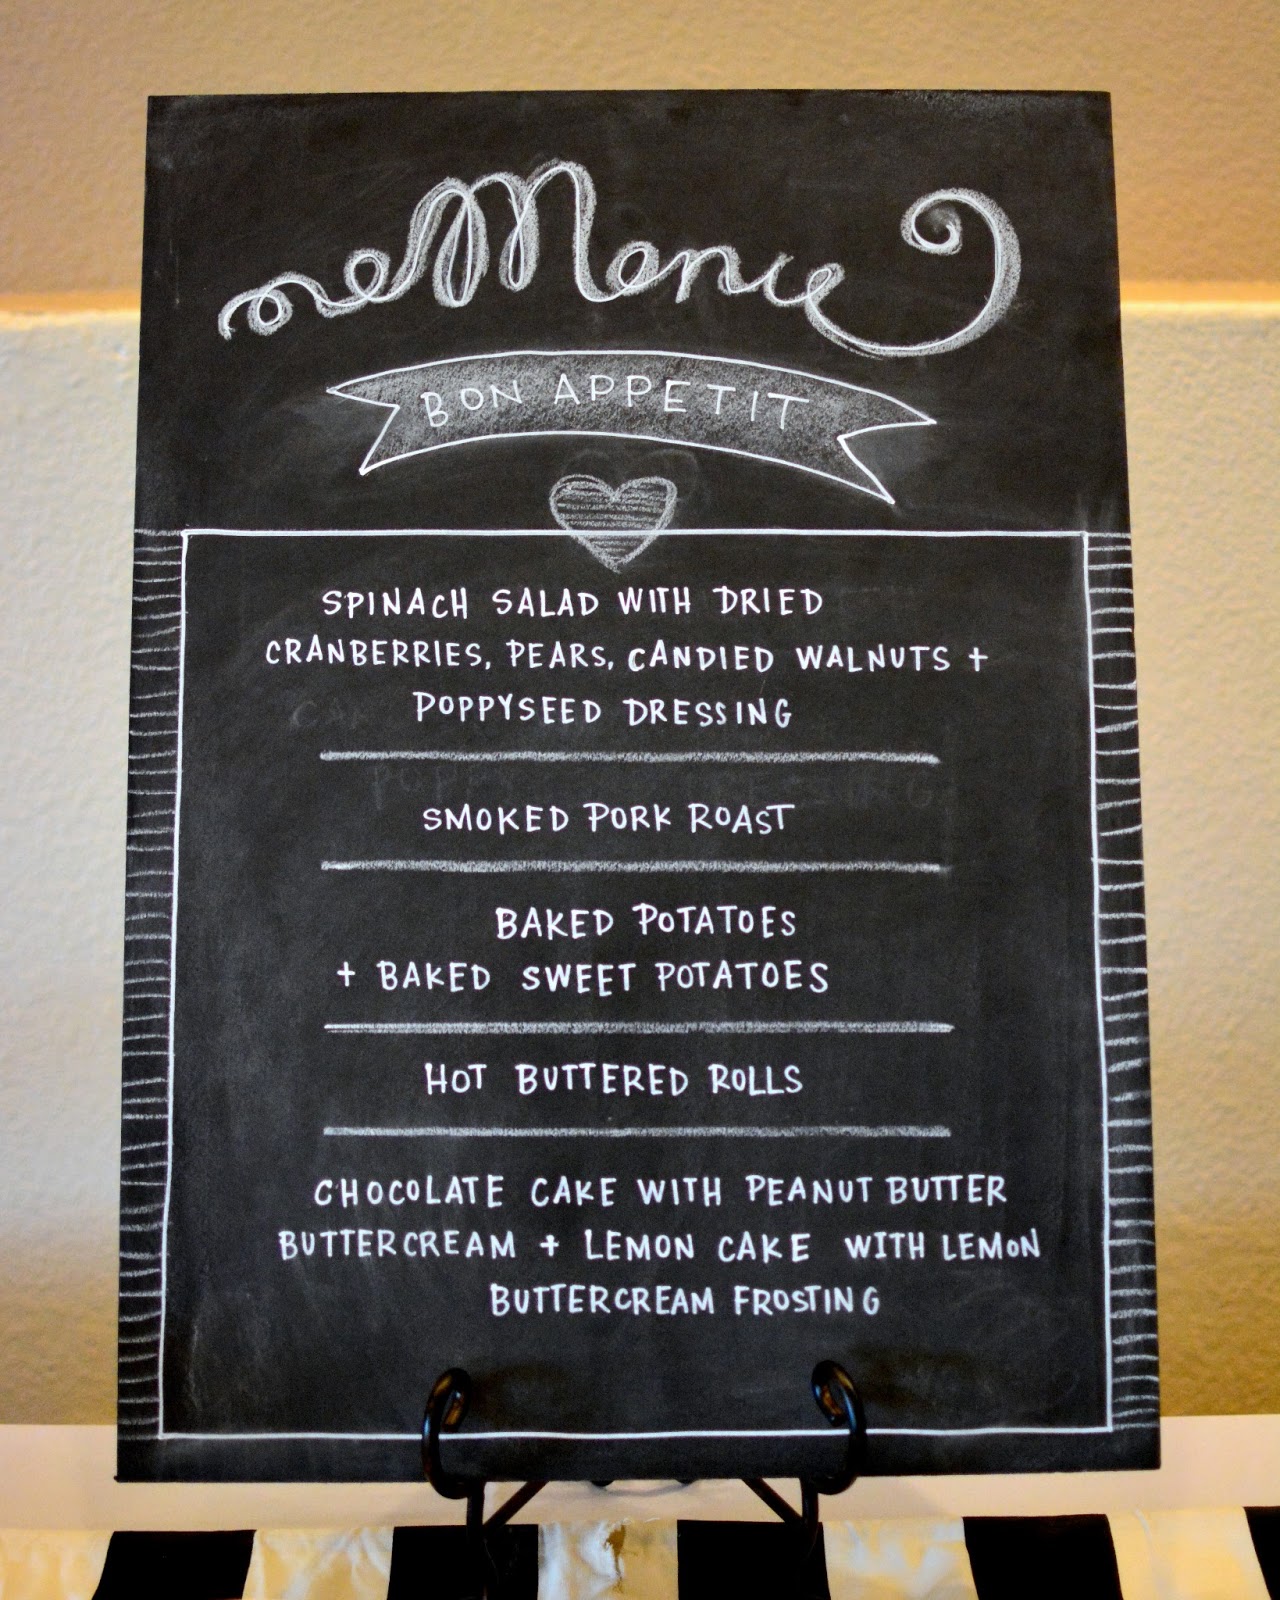 Menu
BON APPETIT
SPINACH SALAD WITH DRIED
CRANBERRIES, PEARS, CANDIED WALNUTS +
POPPYSEED DRESSING
SMOKED PORK ROAST
BAKED POTATOES
+ BAKED SWEET POTATOES
HOT BUTTERED ROLLS
CHOCOLATE CAKE WITH PEANUT BUTTER
BUTTERCREAM + LEMON CAKE WITH LEMON
BUTTERCREAM FROSTING